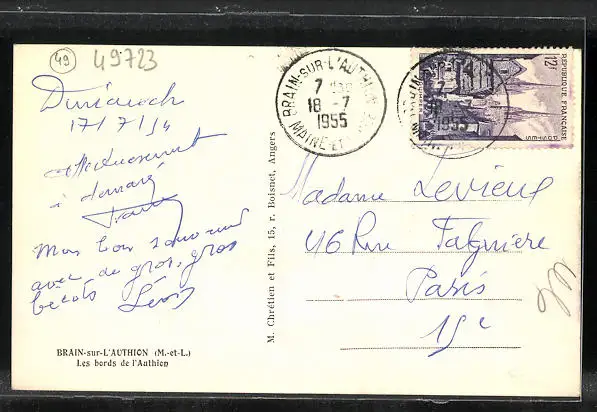 49
49723
Dimanche
17/7/54
affectueusement
à demain
Mon bon souvenir
avec de gros, gros
bécots Léon
BRAIN-sur-L'AUTHION (M.-et-L.)
Les bords de l'Authion
M. Chrétien et Fils, 15, r. Boisnet, Angers
BRAIN-SUR-L'AUTHION
18 -7
1955
MAINE-ET-LOIRE
12f
REPUBLIQUE FRANÇAISE
POSTES
Madame Levieux
46 Rue Falguière
Paris
15e